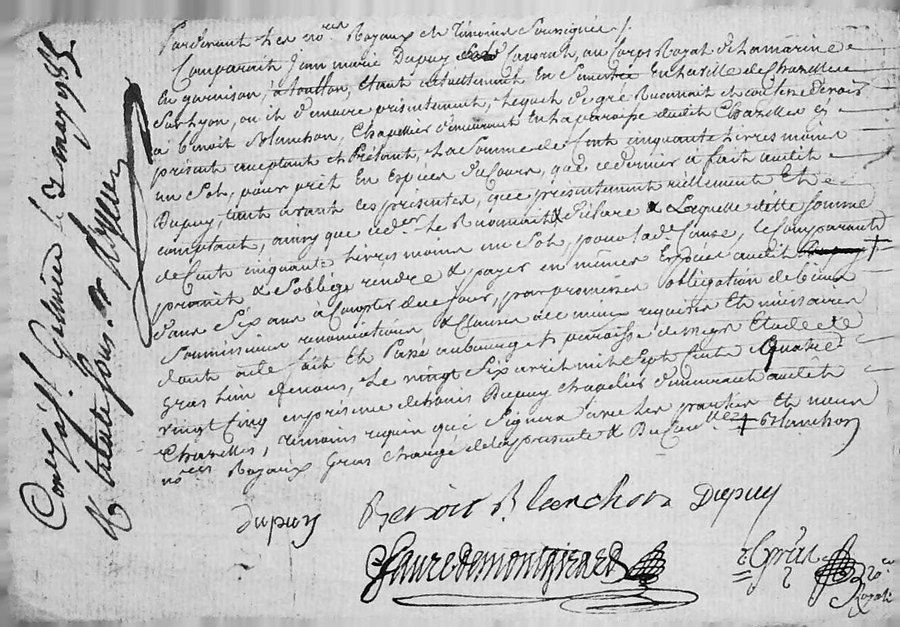 Pardevant Les no.res Royaux et temoins Soussignés /.
Comparait Jean marie Dupuy Caporal, au Corps Royal de Lamarine
En garnison, a toullon, Etant actuellement En Semestre En La ville de Chazelles
Sur Lyon, ou il demeure presentement, Lequel de gré Reconnait et confesse devoir
a Benoit Blanchon, Chapelier demeurant En La paroisse dudit Chazelles Ici
présent acceptant et Prétant, La Somme de Cent cinquante Livres moins
un Sol, pour prêt En Espèces de Cours, que ce dernier a fait audit
Dupuy, tant avant Ces présentes, que présentement réellement Et
comptant, ainsy que ced.er Le Reconnait & declare & Laquelle ditte Somme
de Cent cinquante Livres moins un Sol, pour la d.e Cause, le Comparant
promit & S'oblige rendre & payer en mêmes Espèces audit †
dans Six ans a Compter de ce jour, par promesses obligation de biens
Soumissions renonciations & Clauses a ce mieux requises Et nécessaires
dont acte fait Et Passé au bourg et paroisse de Etude de
Gras L'un de nous, Le vingt Six avril mil Sept Cents quatre
vingt Cinq en présence de Dupuy chapelier demeurant audit
Chazelles, témoins requis que Signera avec Les parties Et nous
no.res Royaux Gras Chargé de La présente & † Blanchon
Dupuy Benoit Blanchon Dupuy
Faure de montgirard Gras no.re
Royal
Con.lé a S.t Galmier le 2 may 1785